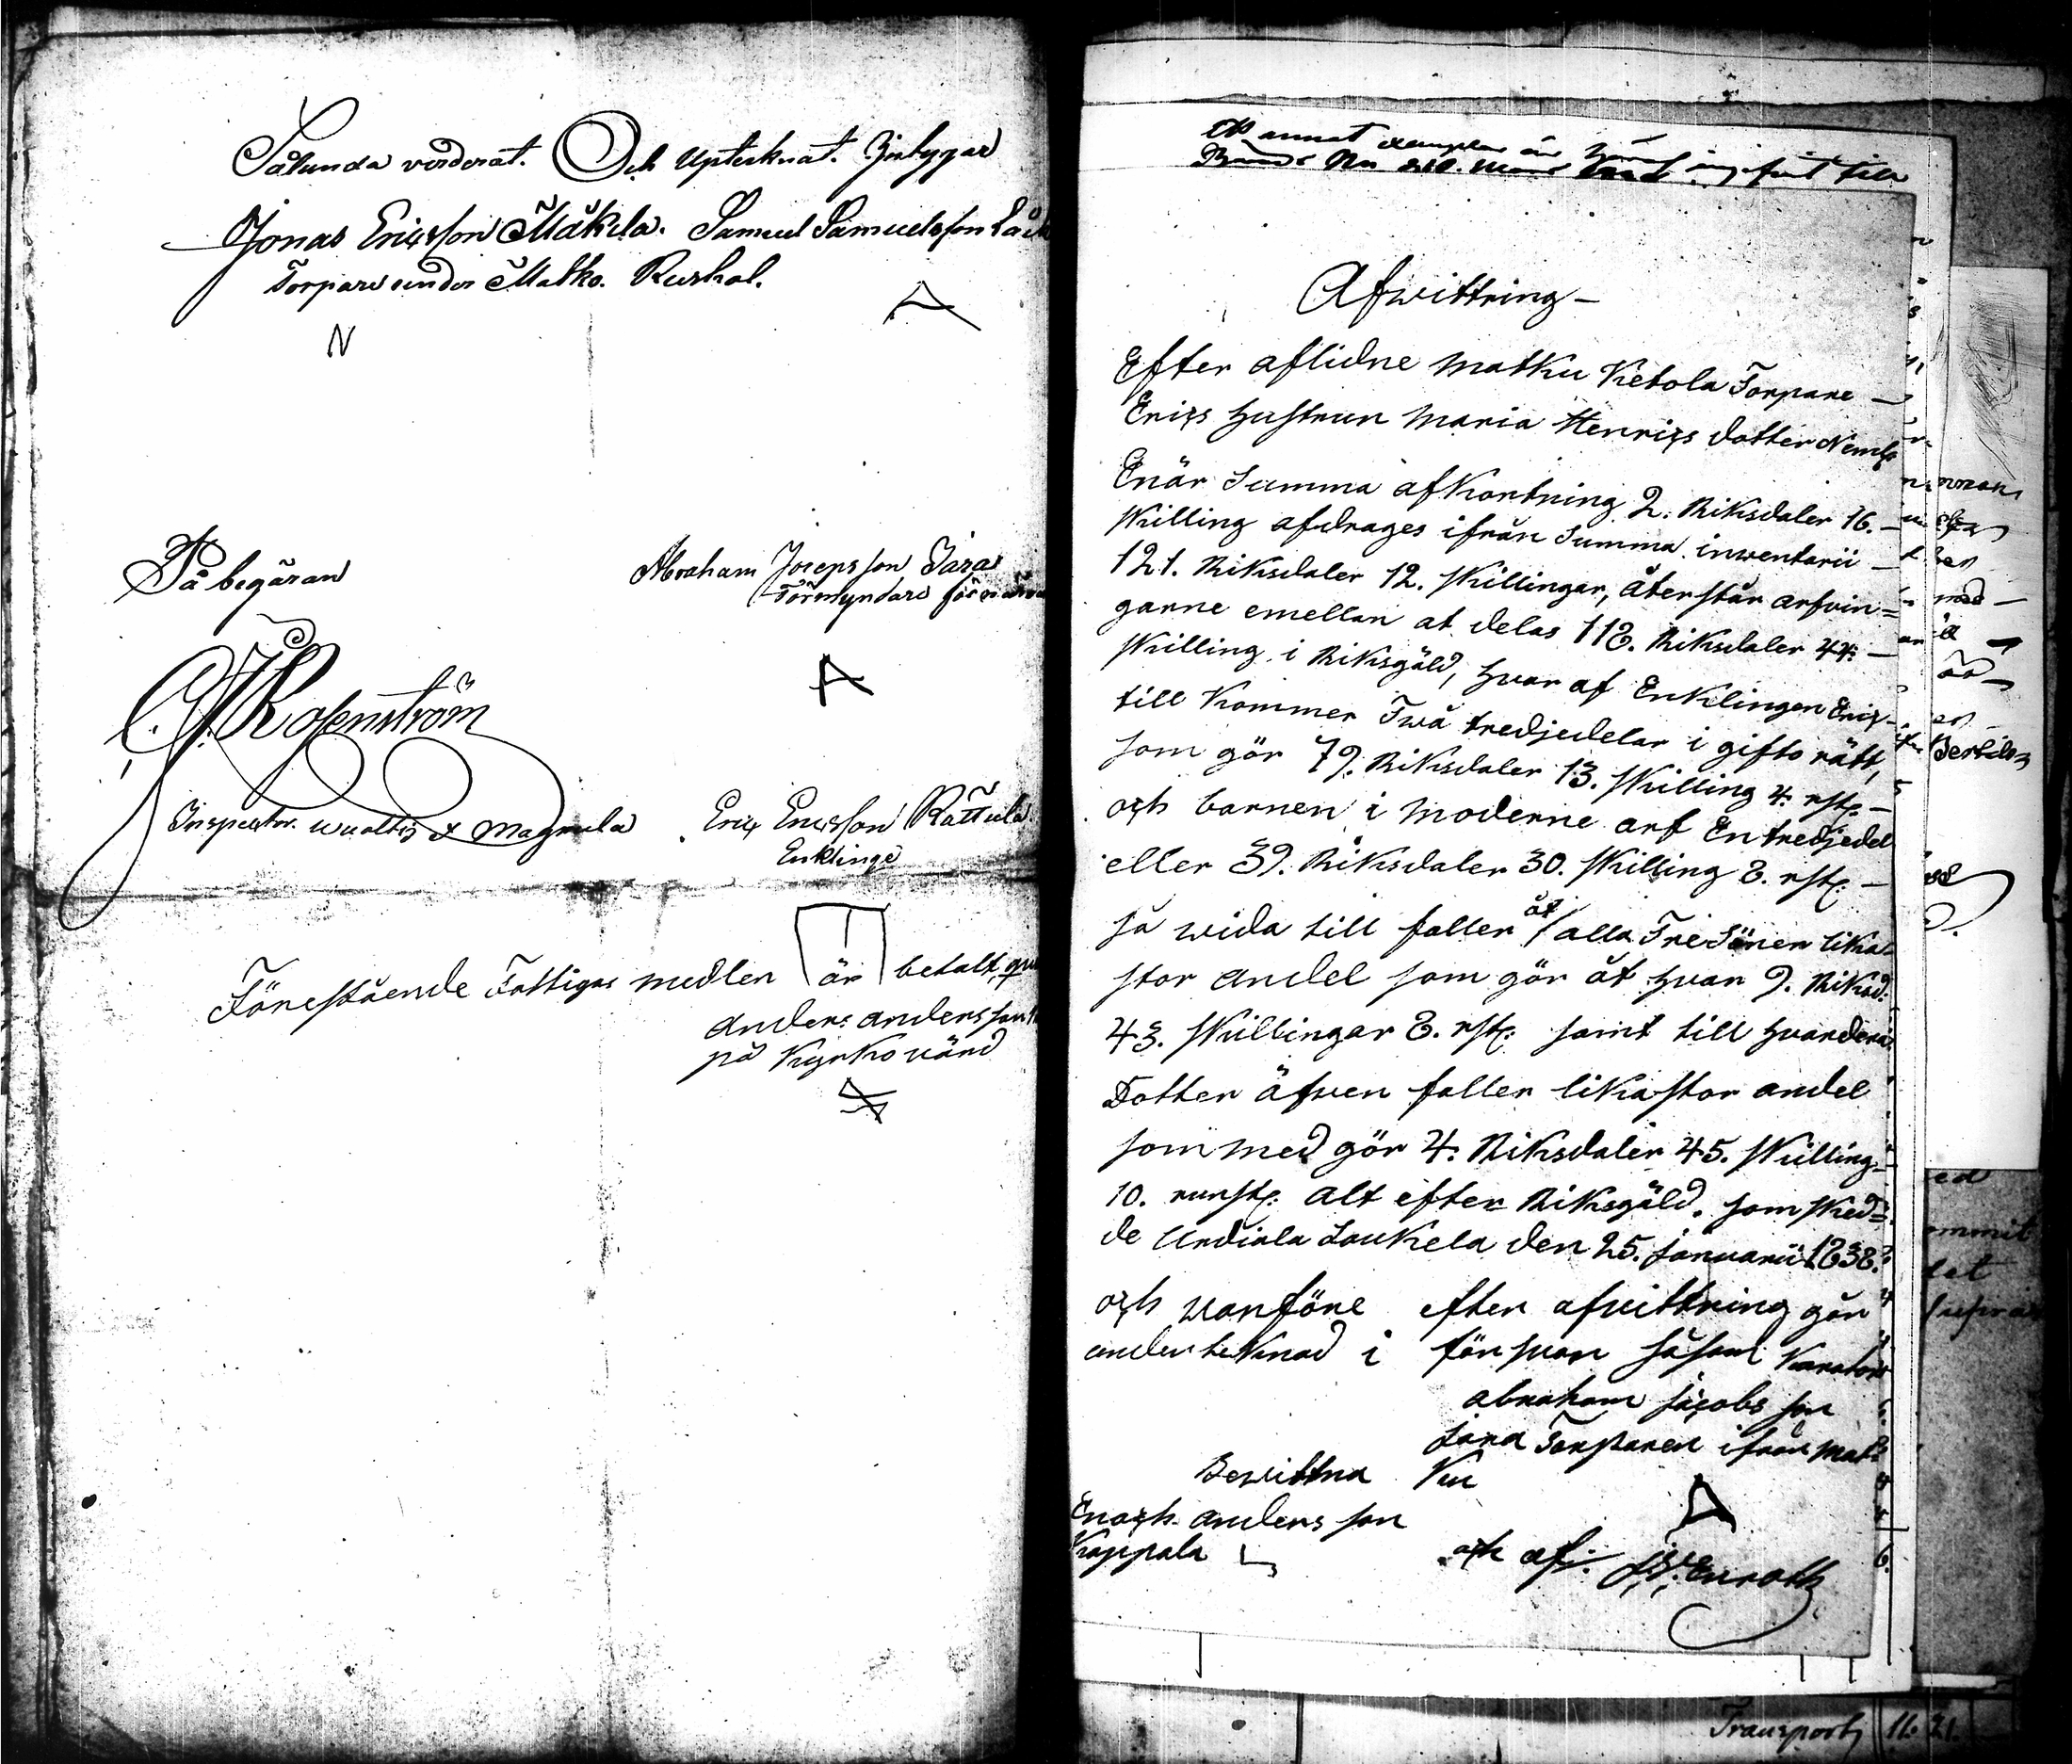 Sålunda värderat. Och Upteknat. Intygar
Jonas Ericsson Mäkila. Samuel Samuelsson
Torpare under Matko. Rusthol.
N
På begäran
Abraham Josepsson Jära
Förmyndare för
C. J. Rosenström
Inspector. & Magnula
Eric Ericsson Rattula
Enklinge
Förestående Fattigas medlen är betalt
anders andersson
på Kyrko värd
ett annat exemplar är
till
Afwittring
Efter aflidne Matku Ketola Torpare
Erics hustrun Maria Henrics dotter Neml:
Enär Summa afkortning 2. Riksdaler 16.
skilling afdrages ifrån Summa inwentarii
121. Riksdaler 12. skillingar, återstår arfvin=
garne emellan at delas 118. Riksdaler 44.
skilling i Riksgäld, hvar af Enklingen Eric
till kommer Twå tredjedelar i gifto rätt,
som gör 79. Riksdaler 13. skilling 4. rst:
och barnen i moderne arf En tredjedel
eller 39. Riksdaler 30. skilling 8. rst:
så wida till faller åt alla Tre Söner lika
stor andel som gör åt hvar 9. Riksd:
43. skillingar 8. rst: samt till hvardera
Dotter äfven faller lika stor andel
som med gör 4. Riksdaler 45. skilling
10. runst: alt efter Riksgäld. som sked=
de Urdiala Laukela den 25. januarii 1838.
och vanföre efter afvittring går
underteknad i försvar såsom Kurator
abraham jacobs son
jara Torparen ifrån Mat=
Bewittna ku
Enoch anders son
Kappala
och af: Enroth
Bertils
ed
ommit
tet
Transport 11. 21.